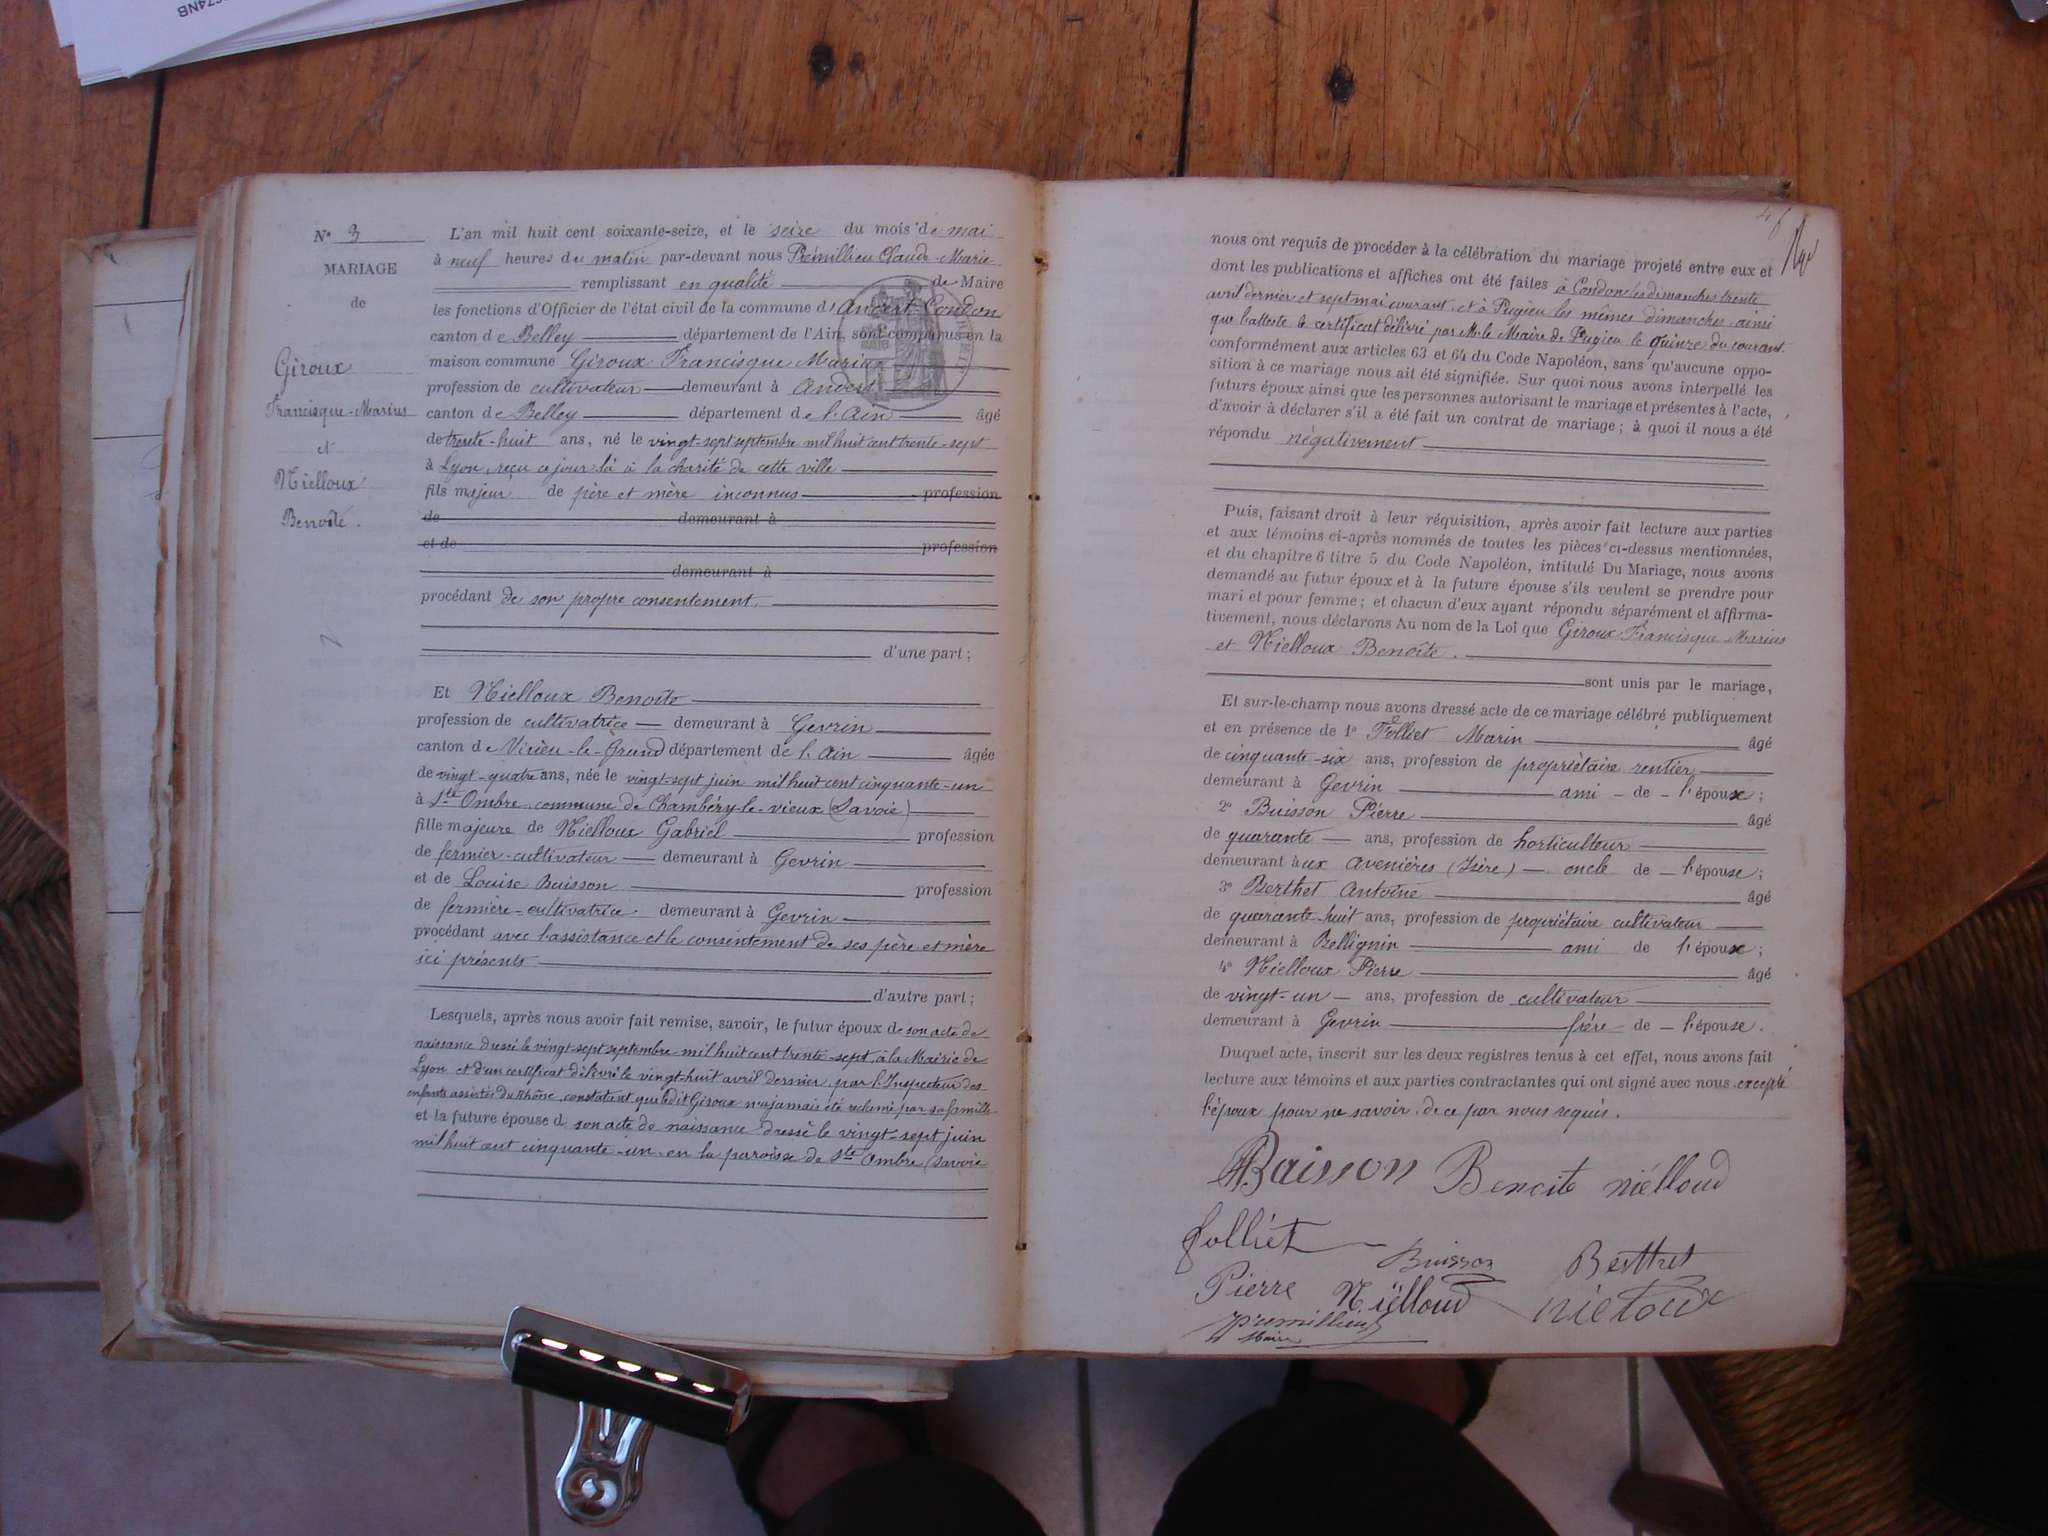 674NB
N° 3
MARIAGE
de
Giroux
Francisque-Marius
et
Nielloux
Benoîte.
L'an mil huit cent soixante-seize, et le seize du mois de mai
à neuf heures du matin par-devant nous Prémillieu Claude-Marie
remplissant en qualité de Maire
les fonctions d'Officier de l'état civil de la commune d'Andert-Condon
canton de Belley département de l'Ain, sont comparus en la
maison commune Giroux Francisque Marius
profession de cultivateur demeurant à Andert
canton de Belley département de l'Ain âgé
de trente-huit ans, né le vingt-sept septembre mil huit cent trente-sept
à Lyon, reçu ce jour-là à la charité de cette ville
fils majeur de père et mère inconnus profession
de demeurant à
et de profession
demeurant à
procédant de son propre consentement.
d'une part;
Et Nielloux Benoîte
profession de cultivatrice demeurant à Gevrin
canton de Virieu-le-Grand département de l'Ain âgée
de vingt-quatre ans, née le vingt-sept juin mil huit cent cinquante-un
à Ste Ombre, commune de Chambéry-le-vieux (Savoie)
fille majeure de Nielloux Gabriel profession
de fermier-cultivateur demeurant à Gevrin
et de Louise Buisson profession
de fermière-cultivatrice demeurant à Gevrin
procédant avec l'assistance et le consentement de ses père et mère
ici présents
d'autre part;
Lesquels, après nous avoir fait remise, savoir, le futur époux de son acte de
naissance dressé le vingt-sept septembre mil huit cent trente-sept, à la Mairie de
Lyon et d'un certificat délivré le vingt-huit avril dernier, par l'Inspecteur des
enfants assistés du Rhône, constatant que ledit Giroux n'a jamais été réclamé par sa famille
et la future épouse d son acte de naissance dressé le vingt-sept juin
mil huit cent cinquante-un en la paroisse de Ste Ombre (Savoie
nous ont requis de procéder à la célébration du mariage projeté entre eux et
dont les publications et affiches ont été faites à Condon les dimanches trente
avril dernier et sept mai courant, et à Pugieu les mêmes dimanches ainsi
que l'atteste le certificat délivré par Mr le Maire de Pugieu le quinze du courant.
conformément aux articles 63 et 64 du Code Napoléon, sans qu'aucune oppo-
sition à ce mariage nous ait été signifiée. Sur quoi nous avons interpellé les
futurs époux ainsi que les personnes autorisant le mariage et présentes à l'acte,
d'avoir à déclarer s'il a été fait un contrat de mariage; à quoi il nous a été
répondu négativement
Puis, faisant droit à leur réquisition, après avoir fait lecture aux parties
et aux témoins ci-après nommés de toutes les pièces ci-dessus mentionnées,
et du chapitre 6 titre 5 du Code Napoléon, intitulé Du Mariage, nous avons
demandé au futur époux et à la future épouse s'ils veulent se prendre pour
mari et pour femme; et chacun d'eux ayant répondu séparément et affirma-
tivement, nous déclarons Au nom de la Loi que Giroux Francisque Marius
et Nielloux Benoîte.
sont unis par le mariage,
Et sur-le-champ nous avons dressé acte de ce mariage célébré publiquement
et en présence de 1° Folliet Marin âgé
de cinquante-six ans, profession de propriétaire rentier
demeurant à Gevrin ami de l'épouse;
2° Buisson Pierre âgé
de quarante ans, profession de horticulteur
demeurant aux Avenières (Isère) oncle de l'épouse;
3° Berthet Antoine âgé
de quarante-huit ans, profession de propriétaire cultivateur
demeurant à Bellignin ami de l'épouse;
4° Nielloux Pierre âgé
de vingt-un ans, profession de cultivateur
demeurant à Gevrin frère de l'épouse.
Duquel acte, inscrit sur les deux registres tenus à cet effet, nous avons fait
lecture aux témoins et aux parties contractantes qui ont signé avec nous excepté
l'époux pour ne savoir, de ce par nous requis.
Buisson Benoite niélloud
folliet Buisson Berthet
Pierre Niëlloud nieloux
Premillieu
Maire